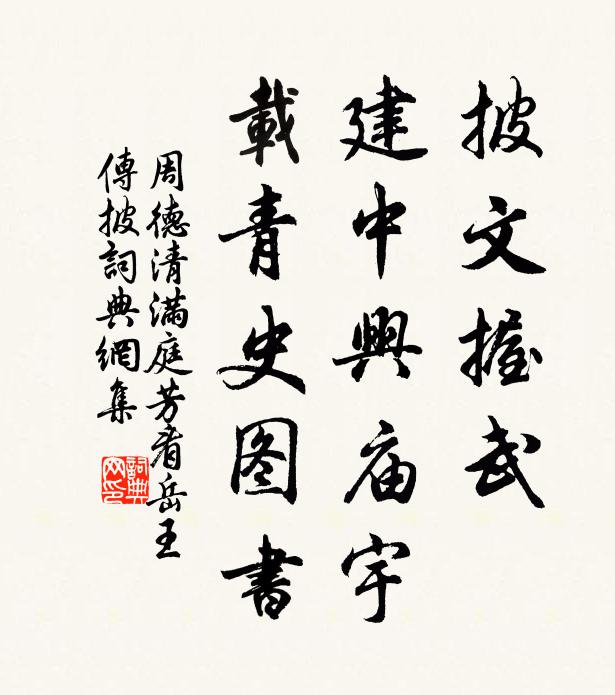 披文握武
建中興庙宇
載青史图書
周德清滿庭芳看岳王
傳披詞典網集
詞典網印